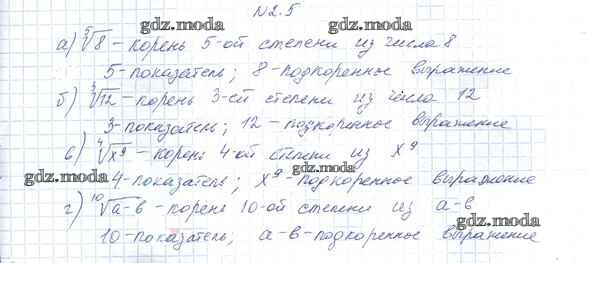 №2.5
gdz.moda
gdz.moda
а) ⁵√8 – корень 5-ой степени из числа 8
gdz.moda
5-показатель; 8-подкоренное выражение
б) ³√12 – корень 3-ей степени из числа 12
gdz.moda
3-показатель; 12 – подкоренное выражение
в) ⁴√x⁹ – корень 4-ой степени из x⁹
gdz.moda
gdz.moda
4-показатель; x⁹-подкоренное выражение
г) ¹⁰√а-в – корень 10-ой степени из а-в
gdz.moda
10-показатель; а-в-подкоренное выражение
gdz.moda